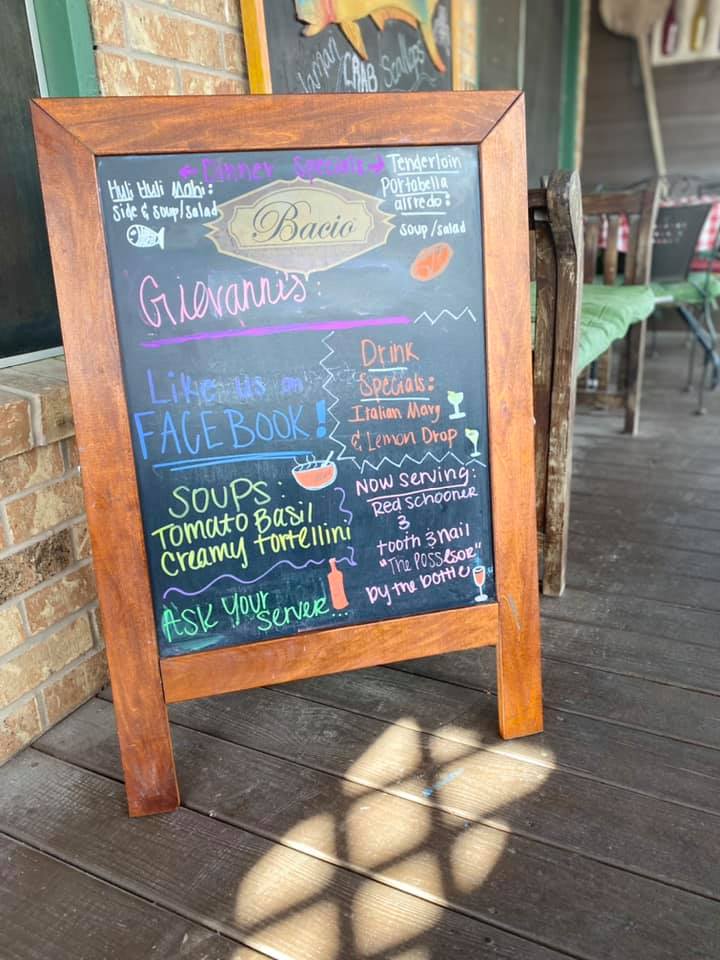 CRAB Scallops
← Dinner Specials →
Huli Huli Mahi:
Side & soup/salad
Tenderloin
Portabella
alfredo:
soup/salad
Bacio
Giovannis:
Like us on
FACEBOOK!
Drink
Specials:
Italian Mary
& Lemon Drop
SOUPS:
Tomato Basil
Creamy tortellini
Now serving:
Red Schooner
&
tooth & nail
"The Possesor"
by the bottle
ASK YOUR
SERVER...